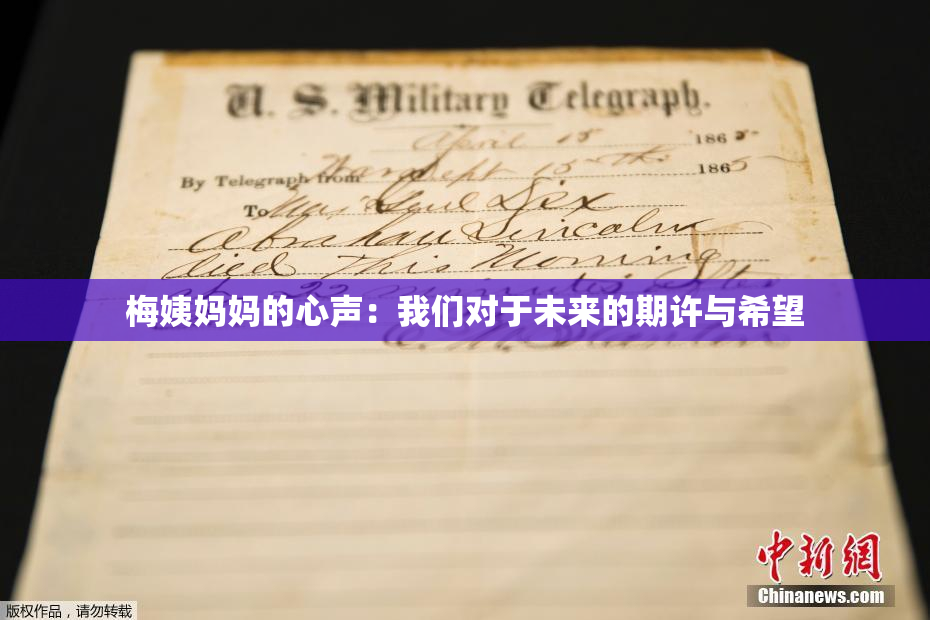 U. S. Military Telegraph.
April 15 1865
By Telegraph from War Dept 15th 1865
To Maj Genl Dix
Abraham Lincoln
died This Morning
at 22 minutes after
梅姨妈妈的心声：我们对于未来的期许与希望
E. M. Stanton
中新網
Chinanews.com
版权作品，请勿转载